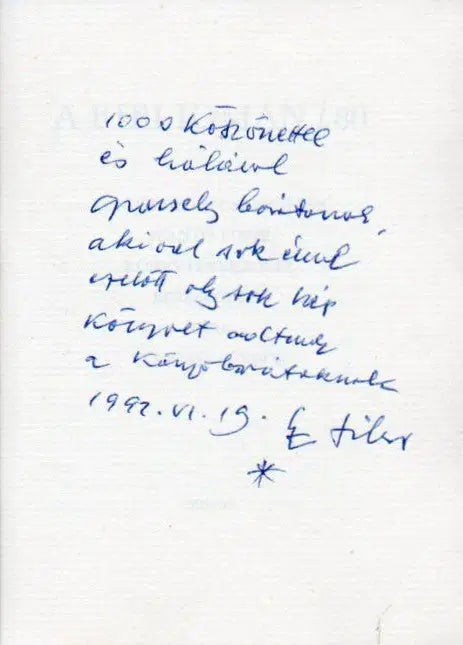 1000 Köszönettel
és hálával
barátomnak,
akivel sok évvel
ezelőtt oly sok szép
könyvet adtunk
a Könyvbarátoknak
1992. VI. 19.